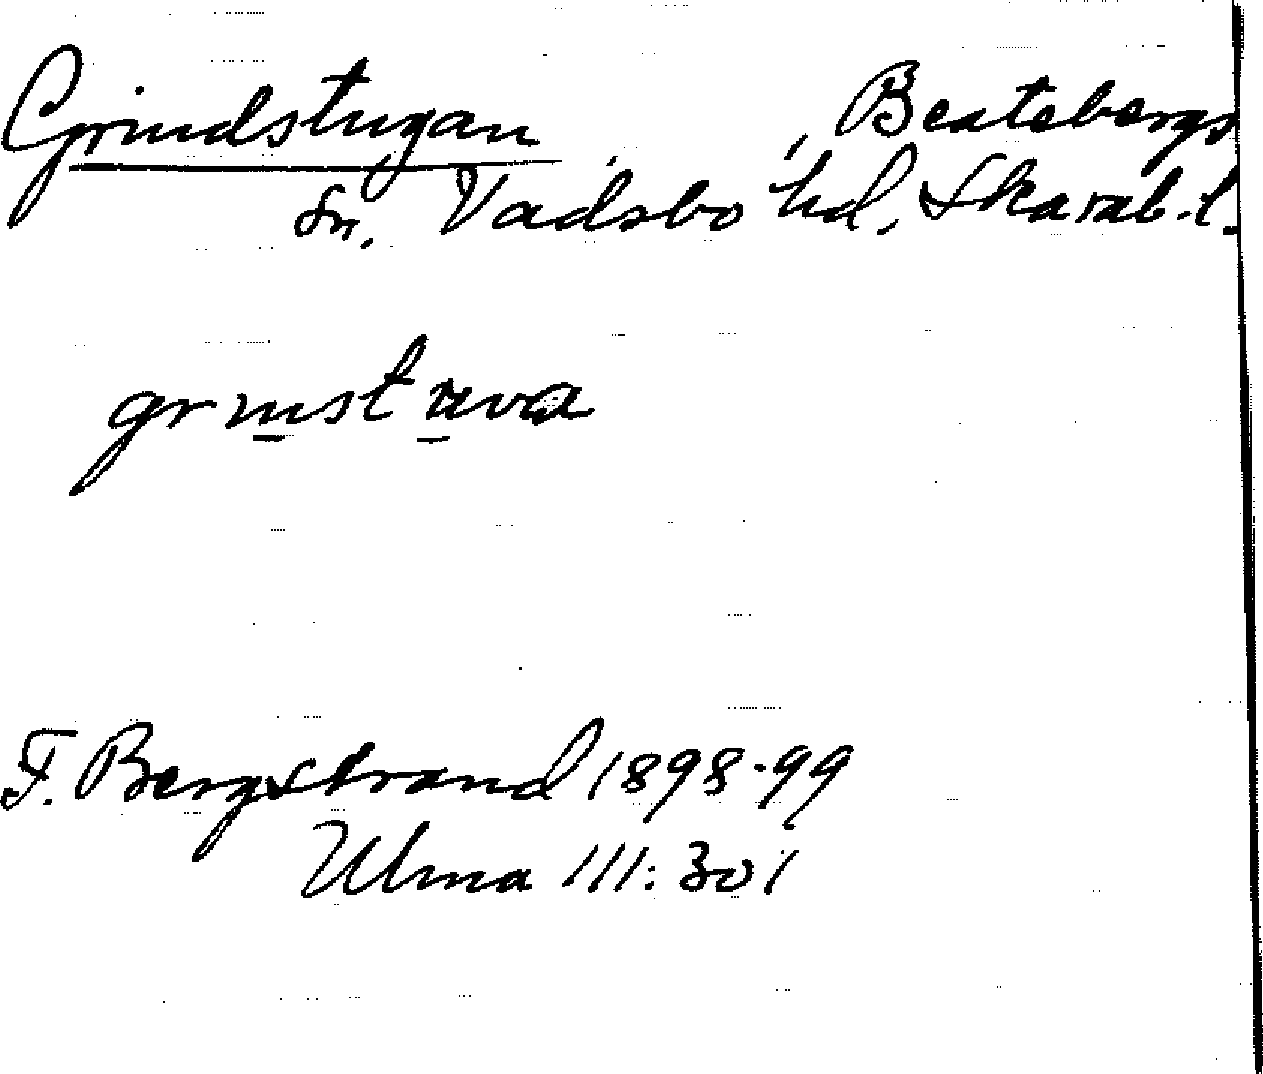 Grindstugan, Beatebergs
sn, Vadsbo hd, Skarab. l.
grinstuva
F. Bergstrand 1898-99
Ulma 111:301